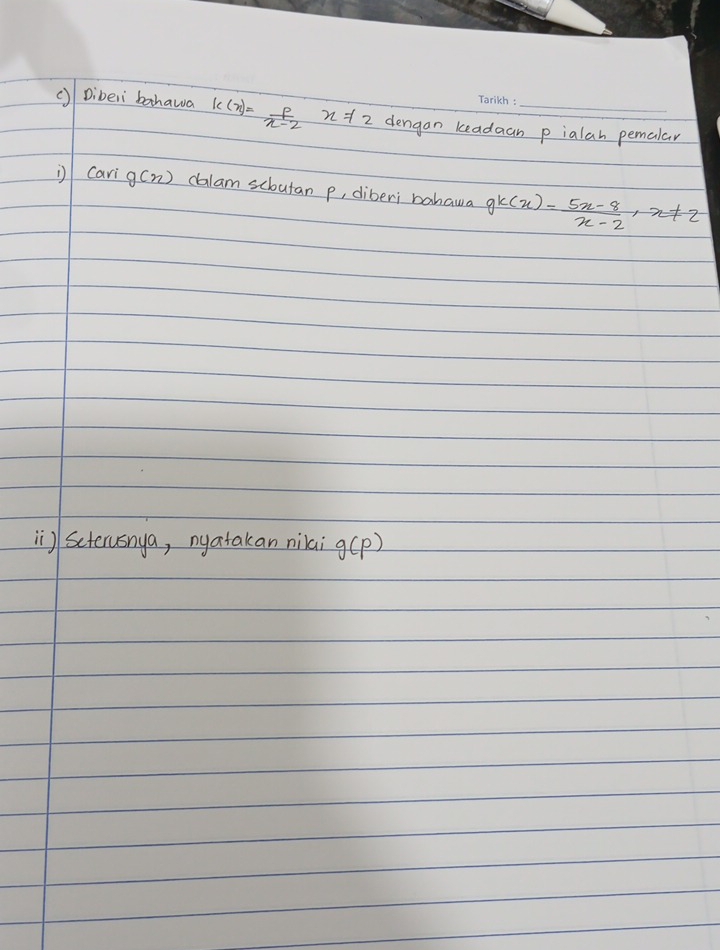 Tarikh :
c) Diberi bahawa k(x)= p/x-2 x ≠ 2 dengan keadaan p ialah pemalar
i) Cari g(x) dalam sebutan p, diberi bahawa gk(x) = 5x-8/x-2, x ≠ 2
ii) Seterusnya, nyatakan nilai g(p)